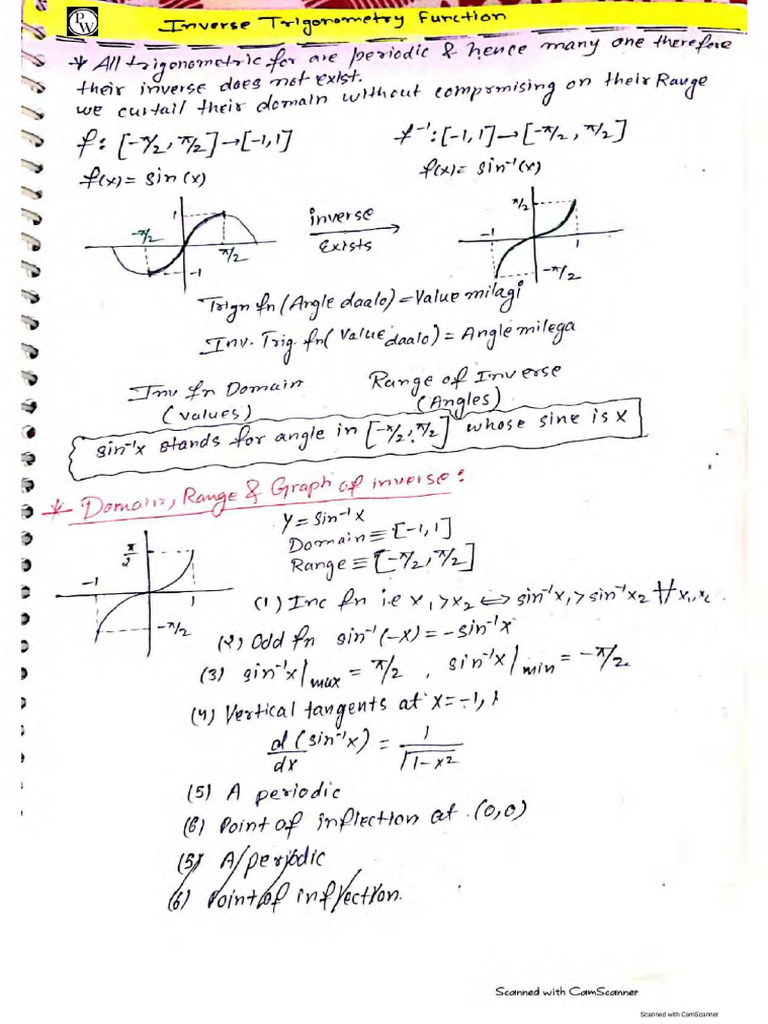 PW
Inverse Trigonometry Function
* All trigonometric fn are periodic & hence many one therefore
their inverse does not exist.
we curtail their domain without compromising on their Range
f: [-π/2, π/2] → [-1,1]
f⁻¹: [-1,1] → [-π/2, π/2]
f(x) = sin(x)
f(x) = sin⁻¹(x)
1
-π/2
π/2
-1
inverse
Exists
π/2
-1
1
-π/2
Trign fn (Angle daalo) = Value milagi
Inv. Trig. fn (Value daalo) = Angle milega
Inv fn Domain
(values)
Range of Inverse
(Angles)
sin⁻¹x stands for angle in [-π/2, π/2] whose sine is x
* Domain, Range & Graph of inverse:
π/2
-1
1
-π/2
y = sin⁻¹x
Domain ≡ [-1,1]
Range ≡ [-π/2, π/2]
(1) Inc fn i.e x₁ > x₂ ⇔ sin⁻¹x₁ > sin⁻¹x₂ ∀ x₁,x₂
(2) Odd fn sin⁻¹(-x) = -sin⁻¹x
(3) sin⁻¹x|max = π/2 , sin⁻¹x|min = -π/2
(4) Vertical tangents at x = -1, 1
d/dx (sin⁻¹x) = 1/√1-x²
(5) A periodic
(6) Point of inflection at (0,0)
(5) A periodic
(6) Point of inflection.
Scanned with CamScanner
Scanned with CamScanner